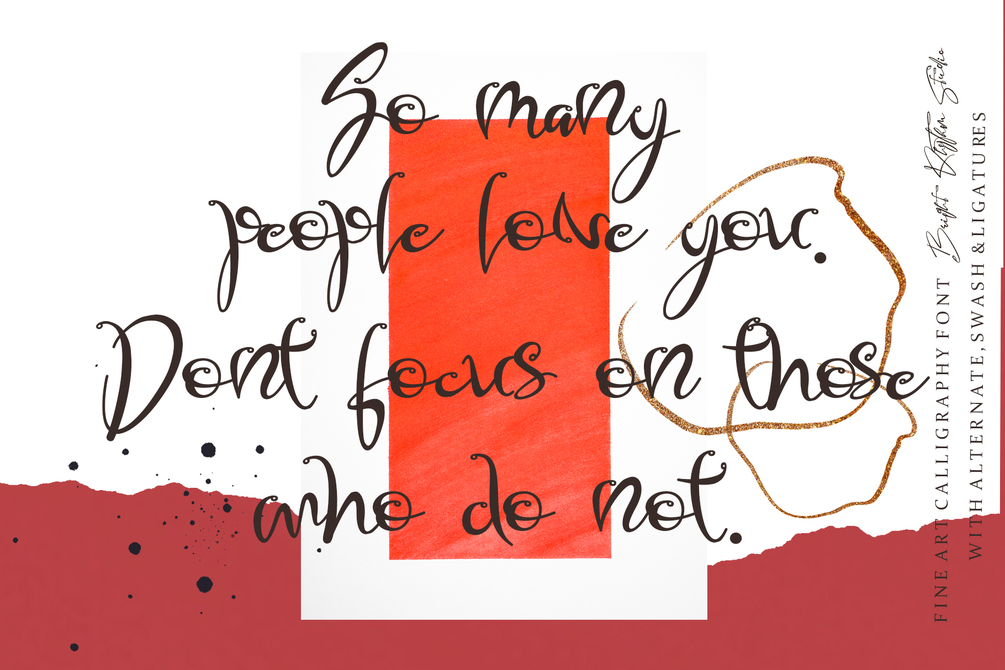 So many
people love you.
Dont focus on those
who do not.
FINE ART CALLIGRAPHY FONT Bright Rhythm Studio
WITH ALTERNATE, SWASH & LIGATURES